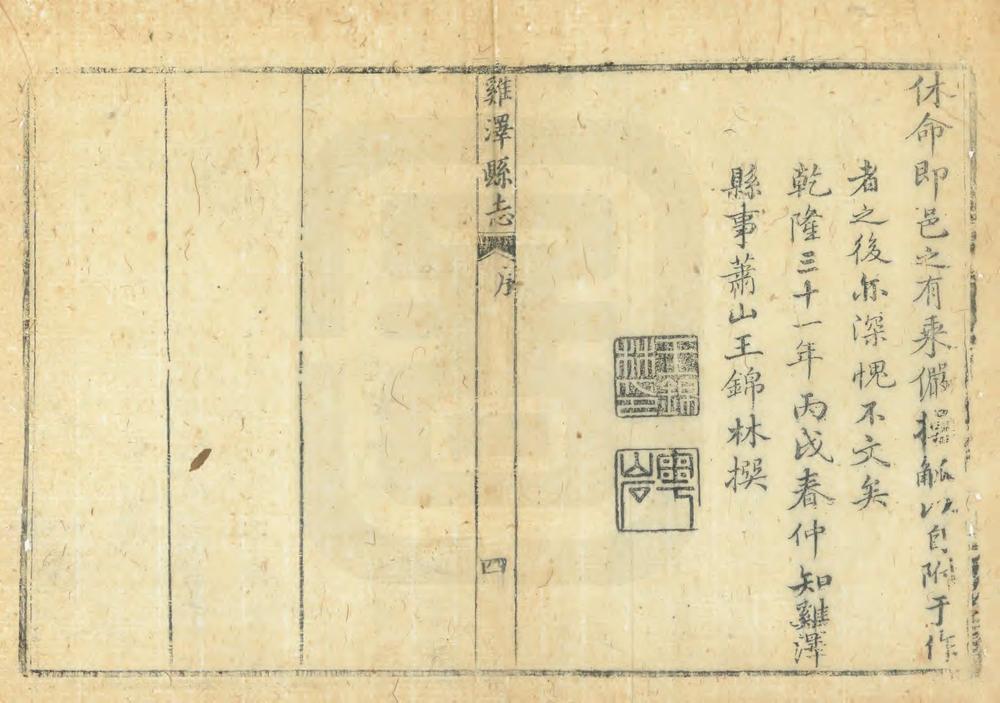 休命即邑之有乘儼操觚以自附于作
者之後亦深愧不文矣
乾隆三十一年丙戌春仲知雞澤
縣事蕭山王錦林撰
王錦林印
雞澤縣志
序
四